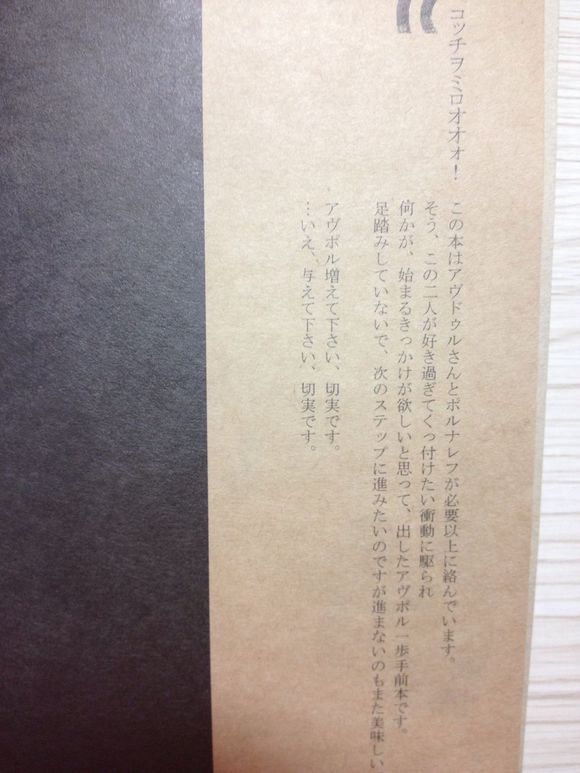 コッチヲミロオオォ！
この本はアヴドゥルさんとポルナレフが必要以上に絡んでいます。
そう、この二人が好き過ぎてくっ付けたい衝動に駆られ
何かが、始まるきっかけが欲しいと思って、出したアヴポル一歩手前本です。
足踏みしていないで、次のステップに進みたいのですが進まないのもまた美味しい
アヴポル増えて下さい、切実です。
…いえ、与えて下さい、切実です。